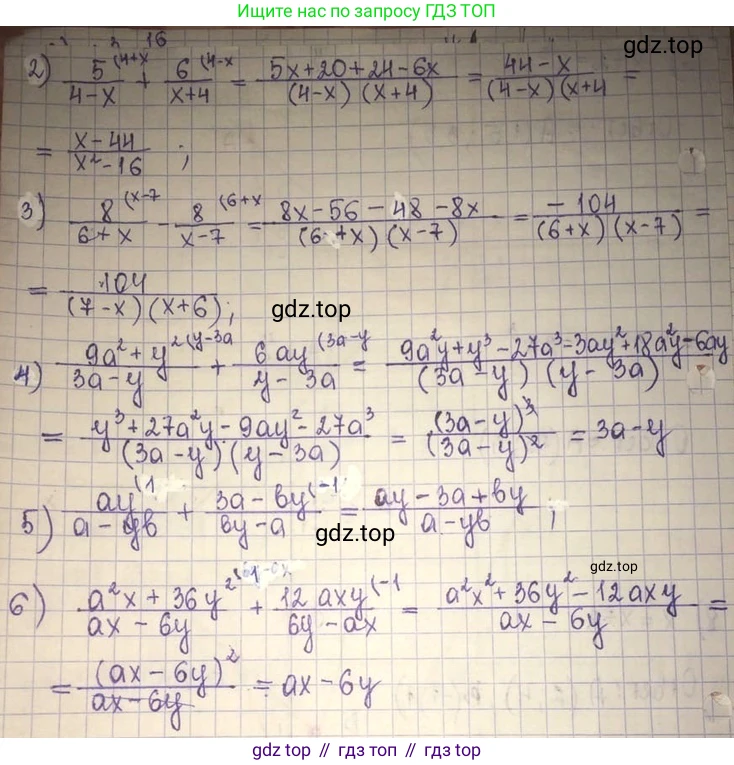 Ищите нас по запросу ГДЗ ТОП
16
gdz.top
2) 5(4+x / 4-x + 6(4-x / x+4 = 5x+20+24-6x / (4-x) (x+4) = 44-x / (4-x)(x+4 =
= x-44 / x²-16 ;
3) 8(x-7 / 6+x - 8(6+x / x-7 = 8x-56-48-8x / (6+x)(x-7) = -104 / (6+x)(x-7) =
= 104 / (7-x)(x+6) ;
gdz.top
4) 9a²+y²(y-3a / 3a-y + 6ay(3a-y / y-3a = 9a²y+y³-27a³-3ay²+18a²y-6ay / (3a-y) (y-3a)
= y³+27a²y-9ay²-27a³ / (3a-y)(y-3a) = (3a-y)³ / (3a-y)² = 3a-y
5) ay(1 / a-yв + 3a-вy(-1 / вy-a = ay-3a+вy / a-yв ;
gdz.top
gdz.top
6) a²x+36y² / ax-6y + 12axy(-1 / 6y-ax = a²x²+36y²-12axy / ax-6y =
= (ax-6y)² / ax-6y = ax-6y
gdz.top // гдз топ // гдз.top